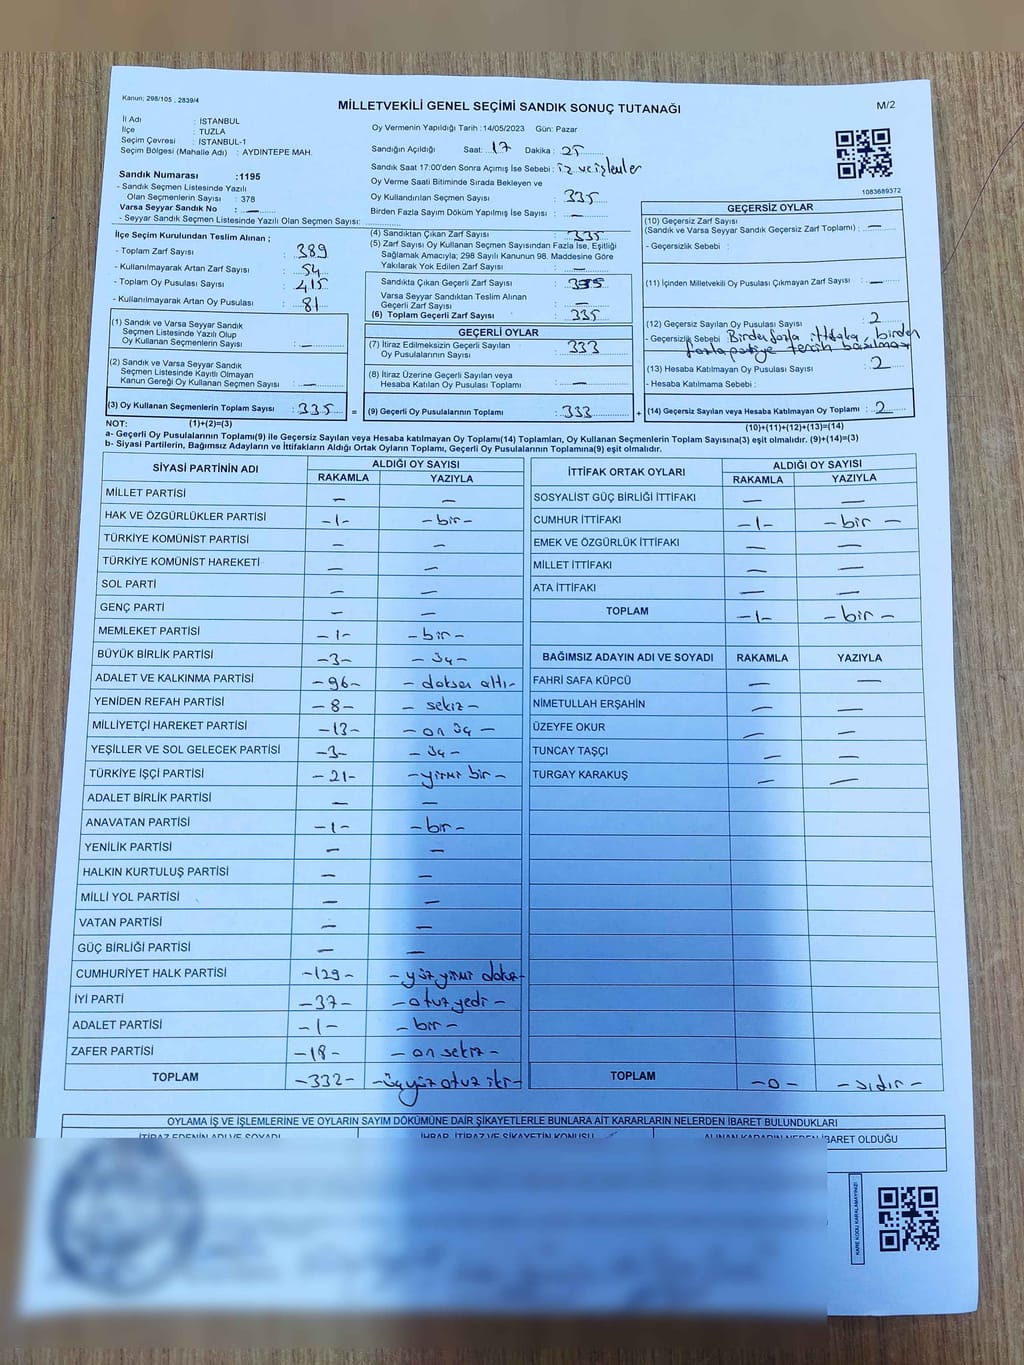 Kanun; 298/105 , 2839/4
MİLLETVEKİLİ GENEL SEÇİMİ SANDIK SONUÇ TUTANAĞI
M/2
İl Adı : İSTANBUL
İlçe : TUZLA
Seçim Çevresi : İSTANBUL-1
Seçim Bölgesi (Mahalle Adı) : AYDINTEPE MAH.
Sandık Numarası :1195
- Sandık Seçmen Listesinde Yazılı
Olan Seçmenlerin Sayısı : 378
Varsa Seyyar Sandık No : —
- Seyyar Sandık Seçmen Listesinde Yazılı Olan Seçmen Sayısı:
Oy Vermenin Yapıldığı Tarih :14/05/2023 Gün: Pazar
Sandığın Açıldığı Saat: 17 Dakika : 25
Sandık Saat 17:00'den Sonra Açımış İse Sebebi : iz ve işlemler
Oy Verme Saati Bitiminde Sırada Bekleyen ve
Oy Kullandırılan Seçmen Sayısı : 335
Birden Fazla Sayım Döküm Yapılmış İse Sayısı : —
1083689372
İlçe Seçim Kurulundan Teslim Alınan ;
- Toplam Zarf Sayısı : 389
- Kullanılmayarak Artan Zarf Sayısı : 54
- Toplam Oy Pusulası Sayısı : 415
- Kullanılmayarak Artan Oy Pusulası : 81
(1) Sandık ve Varsa Seyyar Sandık
Seçmen Listesinde Yazılı Olup
Oy Kullanan Seçmenlerin Sayısı : —
(2) Sandık ve Varsa Seyyar Sandık
Seçmen Listesinde Kayıtlı Olmayan
Kanun Gereği Oy Kullanan Seçmen Sayısı : —
(3) Oy Kullanan Seçmenlerin Toplam Sayısı : 335
(4) Sandıktan Çıkan Zarf Sayısı : 335
(5) Zarf Sayısı Oy Kullanan Seçmen Sayısından Fazla İse, Eşitliği
Sağlamak Amacıyla; 298 Sayılı Kanunun 98. Maddesine Göre
Yakılarak Yok Edilen Zarf Sayısı : —
Sandıkta Çıkan Geçerli Zarf Sayısı : 335
Varsa Seyyar Sandıktan Teslim Alınan
Geçerli Zarf Sayısı : —
(6) Toplam Geçerli Zarf Sayısı : 335
GEÇERLİ OYLAR
(7) İtiraz Edilmeksizin Geçerli Sayılan
Oy Pusulalarının Sayısı : 333
(8) İtiraz Üzerine Geçerli Sayılan veya
Hesaba Katılan Oy Pusulası Toplamı : —
= (9) Geçerli Oy Pusulalarının Toplamı : 333
GEÇERSİZ OYLAR
(10) Geçersiz Zarf Sayısı
(Sandık ve Varsa Seyyar Sandık Geçersiz Zarf Toplamı) : —
- Geçersizlik Sebebi :
(11) İçinden Milletvekili Oy Pusulası Çıkmayan Zarf Sayısı : —
(12) Geçersiz Sayılan Oy Pusulası Sayısı : 2
- Geçersizlik Sebebi : Birden fazla ittifaka, birden
fazla partiye tercih basılması
(13) Hesaba Katılmayan Oy Pusulası Sayısı : 2
- Hesaba Katılmama Sebebi :
+ (14) Geçersiz Sayılan veya Hesaba Katılmayan Oy Toplamı : 2
NOT: (1)+(2)=(3)
(10)+(11)+(12)+(13)=(14)
a- Geçerli Oy Pusulalarının Toplamı(9) ile Geçersiz Sayılan veya Hesaba katılmayan Oy Toplamı(14) Toplamları, Oy Kullanan Seçmenlerin Toplam Sayısına(3) eşit olmalıdır. (9)+(14)=(3)
b- Siyasi Partilerin, Bağımsız Adayların ve İttifakların Aldığı Ortak Oyların Toplamı, Geçerli Oy Pusulalarının Toplamına(9) eşit olmalıdır.
SİYASİ PARTİNİN ADI
ALDIĞI OY SAYISI
RAKAMLA YAZIYLA
MİLLET PARTİSİ — —
HAK VE ÖZGÜRLÜKLER PARTİSİ -1- -bir-
TÜRKİYE KOMÜNİST PARTİSİ — —
TÜRKİYE KOMÜNİST HAREKETİ — —
SOL PARTİ — —
GENÇ PARTİ — —
MEMLEKET PARTİSİ -1- -bir-
BÜYÜK BİRLİK PARTİSİ -3- -üç-
ADALET VE KALKINMA PARTİSİ -96- -doksan altı-
YENİDEN REFAH PARTİSİ -8- -sekiz-
MİLLİYETÇİ HAREKET PARTİSİ -13- -on üç-
YEŞİLLER VE SOL GELECEK PARTİSİ -3- -üç-
TÜRKİYE İŞÇİ PARTİSİ -21- -yirmi bir-
ADALET BİRLİK PARTİSİ — —
ANAVATAN PARTİSİ -1- -bir-
YENİLİK PARTİSİ — —
HALKIN KURTULUŞ PARTİSİ — —
MİLLİ YOL PARTİSİ — —
VATAN PARTİSİ — —
GÜÇ BİRLİĞİ PARTİSİ — —
CUMHURİYET HALK PARTİSİ -129- -yüz yirmi dokuz-
İYİ PARTİ -37- -otuz yedi-
ADALET PARTİSİ -1- -bir-
ZAFER PARTİSİ -18- -on sekiz-
TOPLAM -332- -üçyüz otuz iki-
İTTİFAK ORTAK OYLARI
ALDIĞI OY SAYISI
RAKAMLA YAZIYLA
SOSYALİST GÜÇ BİRLİĞİ İTTİFAKI — —
CUMHUR İTTİFAKI -1- -bir-
EMEK VE ÖZGÜRLÜK İTTİFAKI — —
MİLLET İTTİFAKI — —
ATA İTTİFAKI — —
TOPLAM -1- -bir-
BAĞIMSIZ ADAYIN ADI VE SOYADI RAKAMLA YAZIYLA
FAHRİ SAFA KÜPCÜ — —
NİMETULLAH ERŞAHİN — —
ÜZEYFE OKUR — —
TUNCAY TAŞÇI — —
TURGAY KARAKUŞ — —
TOPLAM -0- -sıfır-
OYLAMA İŞ VE İŞLEMLERİNE VE OYLARIN SAYIM DÖKÜMÜNE DAİR ŞİKAYETLERLE BUNLARA AİT KARARLARIN NELERDEN İBARET BULUNDUKLARI
İTİRAZ EDENİN ADI VE SOYADI İHBAR, İTİRAZ VE ŞİKAYETİN KONUSU ALINAN KARARIN NEDEN İBARET OLDUĞU
KARE KODU KARALAMAYINIZ!